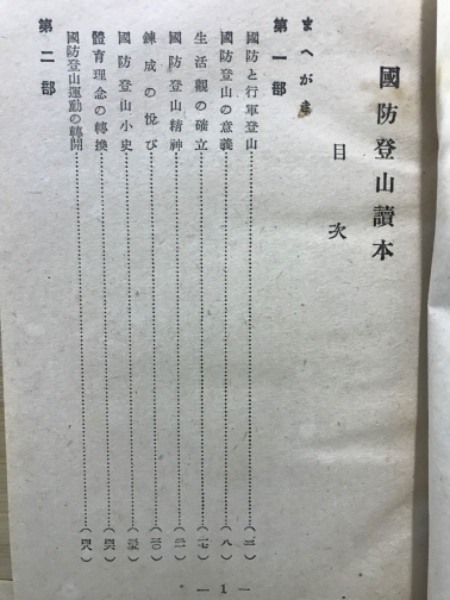 國防登山讀本
目次
まへがき
第一部
國防と行軍登山
國防登山の意義……(八)
生活觀の確立……(一七)
國防登山精神
鍊成の悅び……(三〇)
國防登山小史
體育理念の轉換
國防登山運動の轉開
第二部
— 1 —